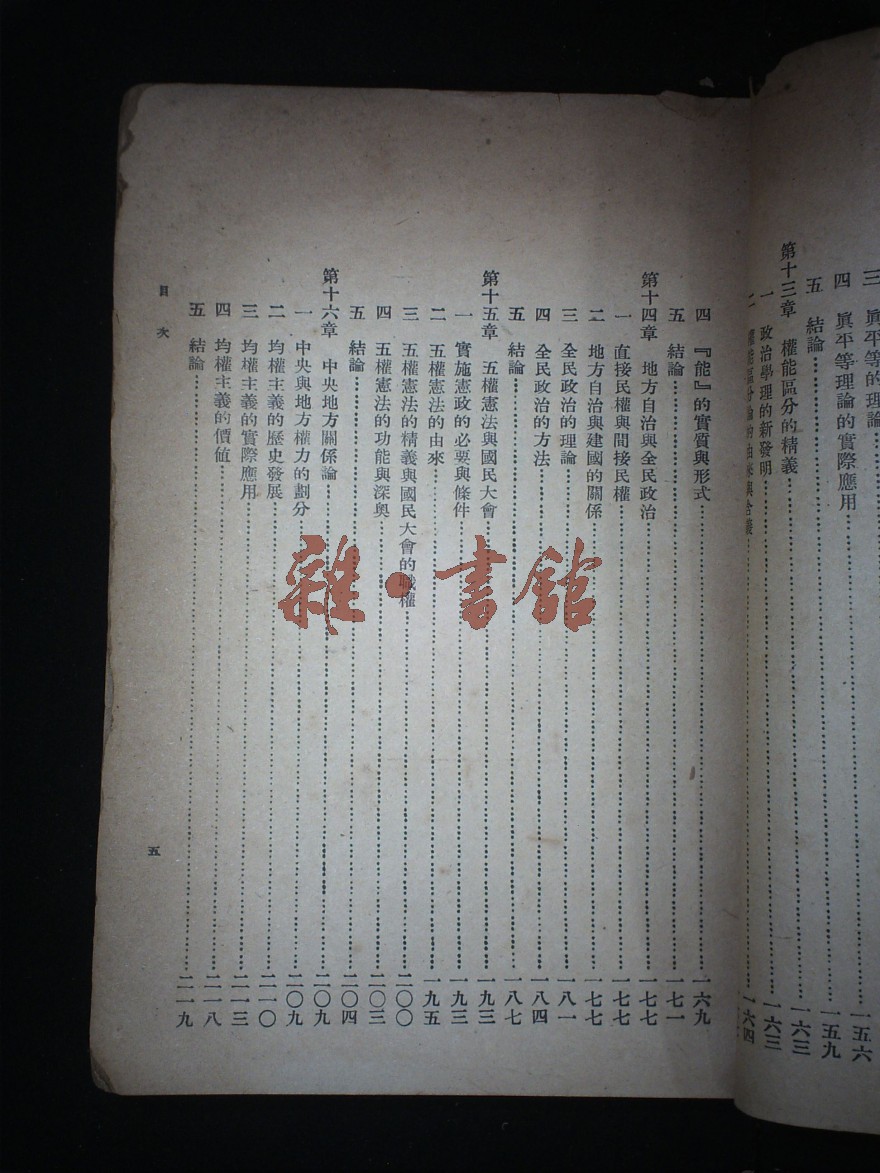 三 眞平等的理論……一五六
四 眞平等理論的實際應用……一五九
五 結論……一六三
第十三章 權能區分的精義……一六三
一 政治學理的新發明……一六四
二 權能區分論的由來與含義……
四 『能』的實質與形式……一六九
五 結論……一七一
第十四章 地方自治與全民政治……一七七
一 直接民權與間接民權……一七七
二 地方自治與建國的關係……一七七
三 全民政治的理論……一八一
四 全民政治的方法……一八四
五 結論……一八七
第十五章 五權憲法與國民大會……一九三
一 實施憲政的必要與條件……一九三
二 五權憲法的由來……一九五
三 五權憲法的精義與國民大會的職權……二〇〇
四 五權憲法的功能與深奧……二〇三
五 結論……二〇四
第十六章 中央地方關係論……二〇九
一 中央與地方權力的劃分……二〇九
二 均權主義的歷史發展……二一〇
三 均權主義的實際應用……二一三
四 均權主義的價値……二一八
五 結論……二一九
目次
五
雜·書館